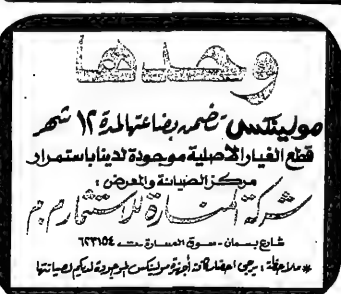 وحدها
مولينكس تضمن بضاعتها لمدة ١٢ شهر
قطع الغيار الاصلية موجودة لدينا باستمرار
مركز الصيانة والمعرض :
شركة المنارة للاستثمار م.م
شارع بسمان - سوق المنارة ت ٦٢٣١٥٤
* ملاحظة : يرجى احضار كافة أجهزة مولينكس الموجودة لديكم لصيانتها